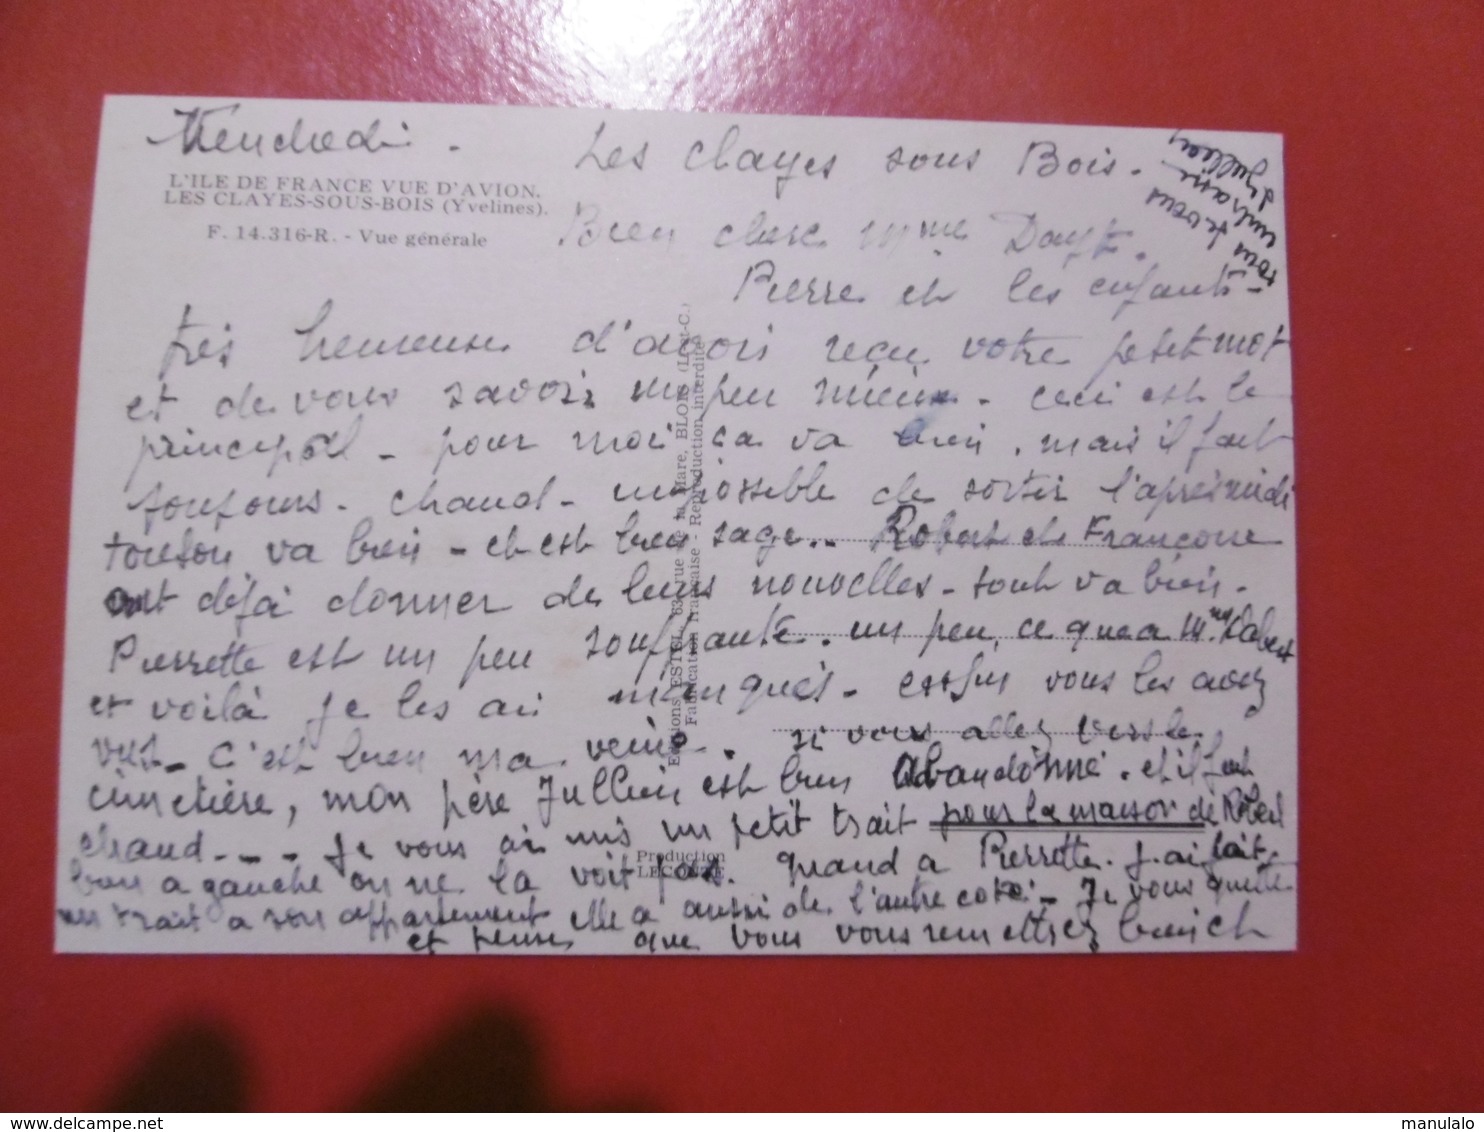 Vendredi. Les Clayes sous Bois.
L'ILE DE FRANCE VUE D'AVION.
LES CLAYES-SOUS-BOIS (Yvelines).
F. 14.316-R. - Vue générale
Bien chere Mme
Pierre et les enfants -
très heureuse d'avoir reçu votre petit mot
et de vous savoir un peu mieux - ceci est le
principal - pour moi ça va bien, mais il fait
toujours - chaud - impossible de sortir l'après midi
va bien - et est bien sage.. Robert et Françoise
ont déjà donner de leurs nouvelles - tout va bien -
Pierrette est un peu souffrante. un peu, ce que a Mme
et voilà je les ai manqués - vous les avez
vus - C'est bien ma veine. si vous allez vers le
cimetière, mon père Jullien est bien abandonné. et il fait
chaud - - - je vous ai mis un petit trait pour la maison de Robert
bien a gauche on ne la voit pas. quand a Pierrette. J'ai fait
un trait a son appartement elle a aussi de l'autre coté - Je vous quitte
et pense que vous vous remettrez bien et
tous je vous
embrasse
Jullien
Editions ESTEL, 63, rue de la Mare, BLOIS (L.-et-C.)
Fabrication française - Reproduction interdite
Production
LECONTE
manulalo